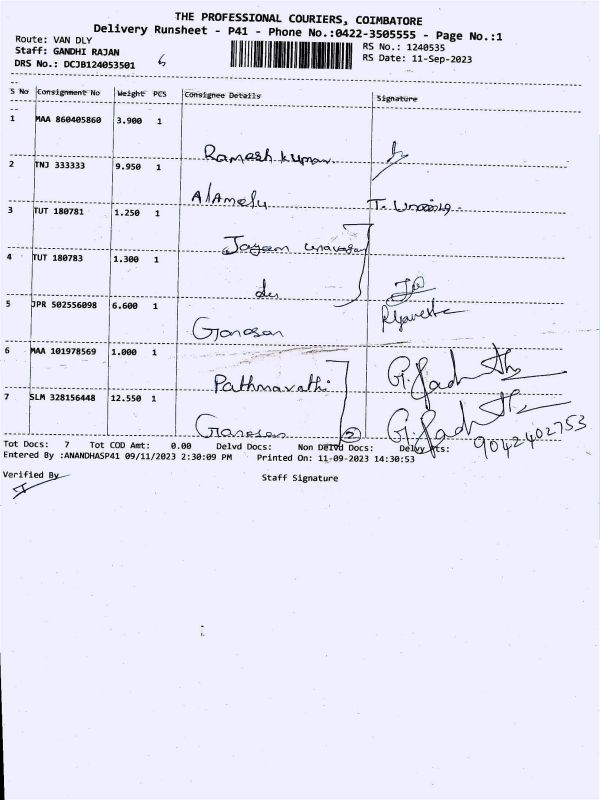 THE PROFESSIONAL COURIERS, COIMBATORE
Delivery Runsheet - P41 - Phone No.:0422-3505555 - Page No.:1
Route: VAN DLY
RS No.: 1240535
Staff: GANDHI RAJAN
RS Date: 11-Sep-2023
DRS No.: DCJB124053501 6
S No Consignment No Weight PCS Consignee Details Signature
1 MAA 860405860 3.900 1
Ramesh kumar
2 TNJ 333333 9.950 1
Alamelu
3 TUT 180781 1.250 1
Jayam
4 TUT 180783 1.300 1
do
5 JPR 502556098 6.600 1
Ganesan
6 MAA 101978569 1.000 1
Pathmavathi
7 SLM 328156448 12.550 1
Ganesan 2
9042402753
Tot Docs: 7 Tot COD Amt: 0.00 Delvd Docs: Non Delvd Docs: Delvy Pts:
Entered By :ANANDHASP41 09/11/2023 2:30:09 PM Printed On: 11-09-2023 14:30:53
Verified By
Staff Signature